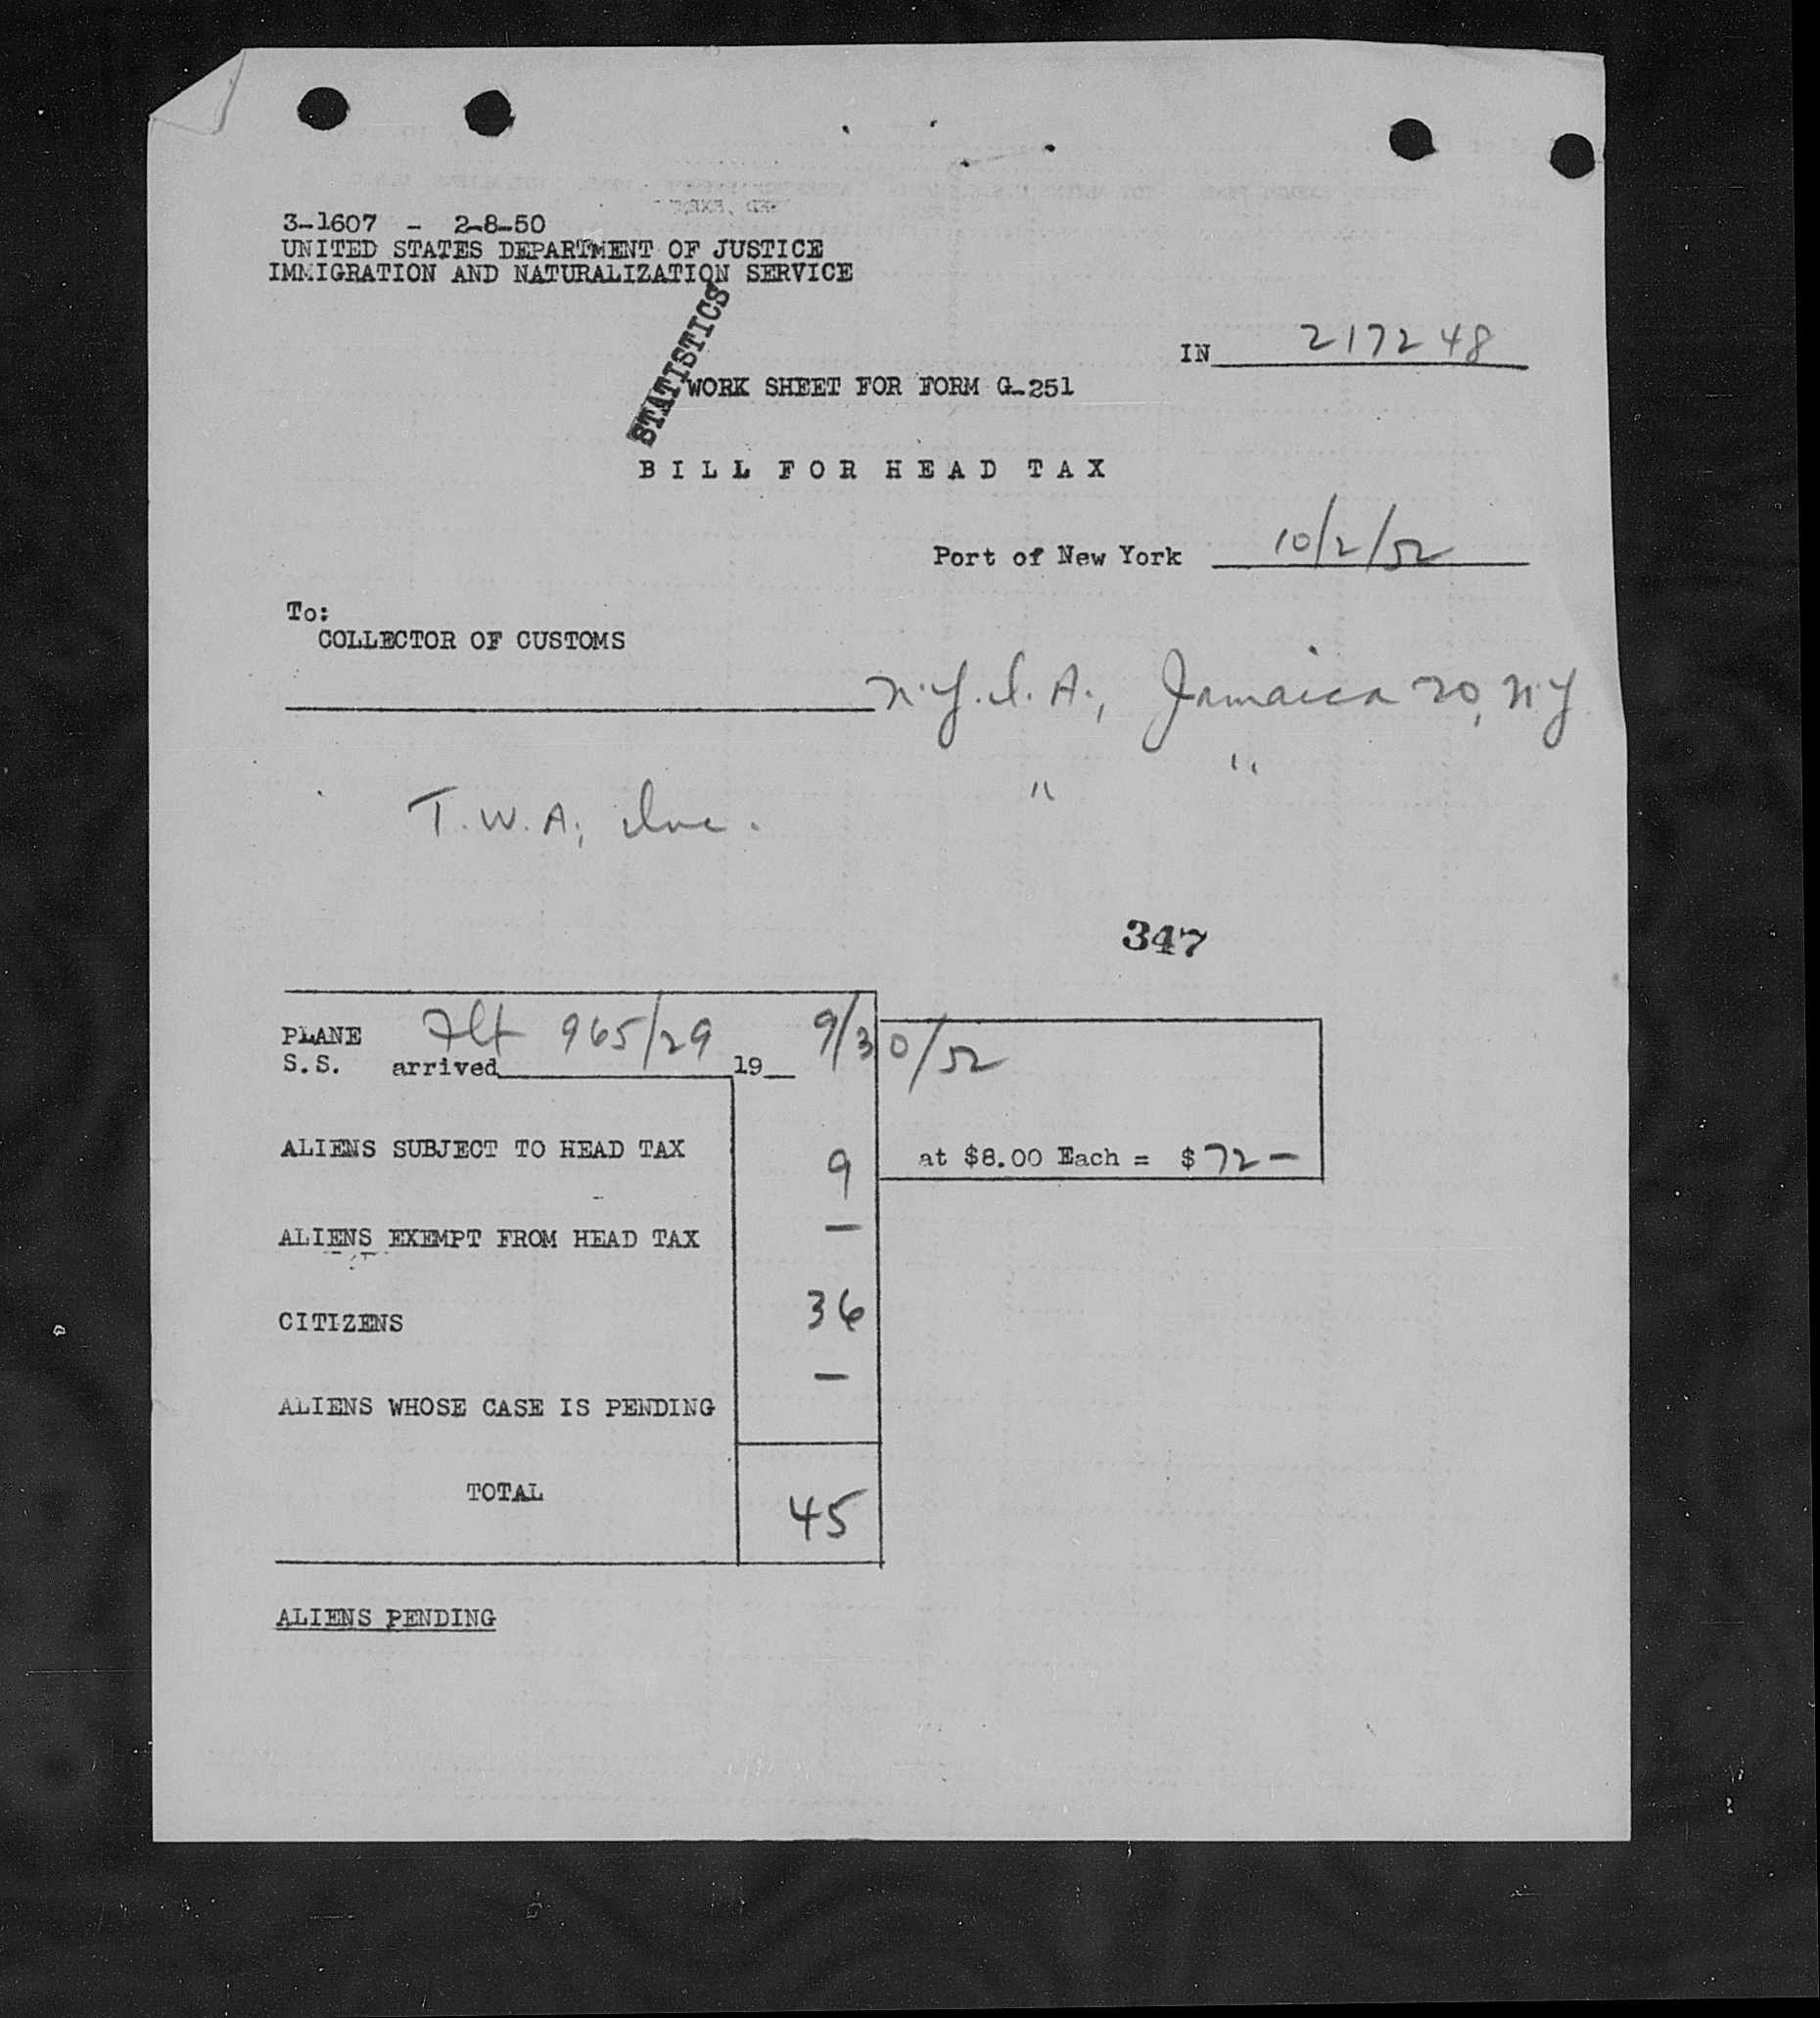 3-1607 - 2-8-50
UNITED STATES DEPARTMENT OF JUSTICE
IMMIGRATION AND NATURALIZATION SERVICE
STATISTICS
IN 217248
WORK SHEET FOR FORM G-251
BILL FOR HEAD TAX
Port of New York 10/2/52
To:
COLLECTOR OF CUSTOMS
N.Y.I.A., Jamaica 20, NY
T.W.A., Inc. " "
347
PLANE Flt 965/29 9/30/52
S.S. arrived 19
ALIENS SUBJECT TO HEAD TAX 9 at $8.00 Each = $72-
ALIENS EXEMPT FROM HEAD TAX -
CITIZENS 36
ALIENS WHOSE CASE IS PENDING -
TOTAL 45
ALIENS PENDING